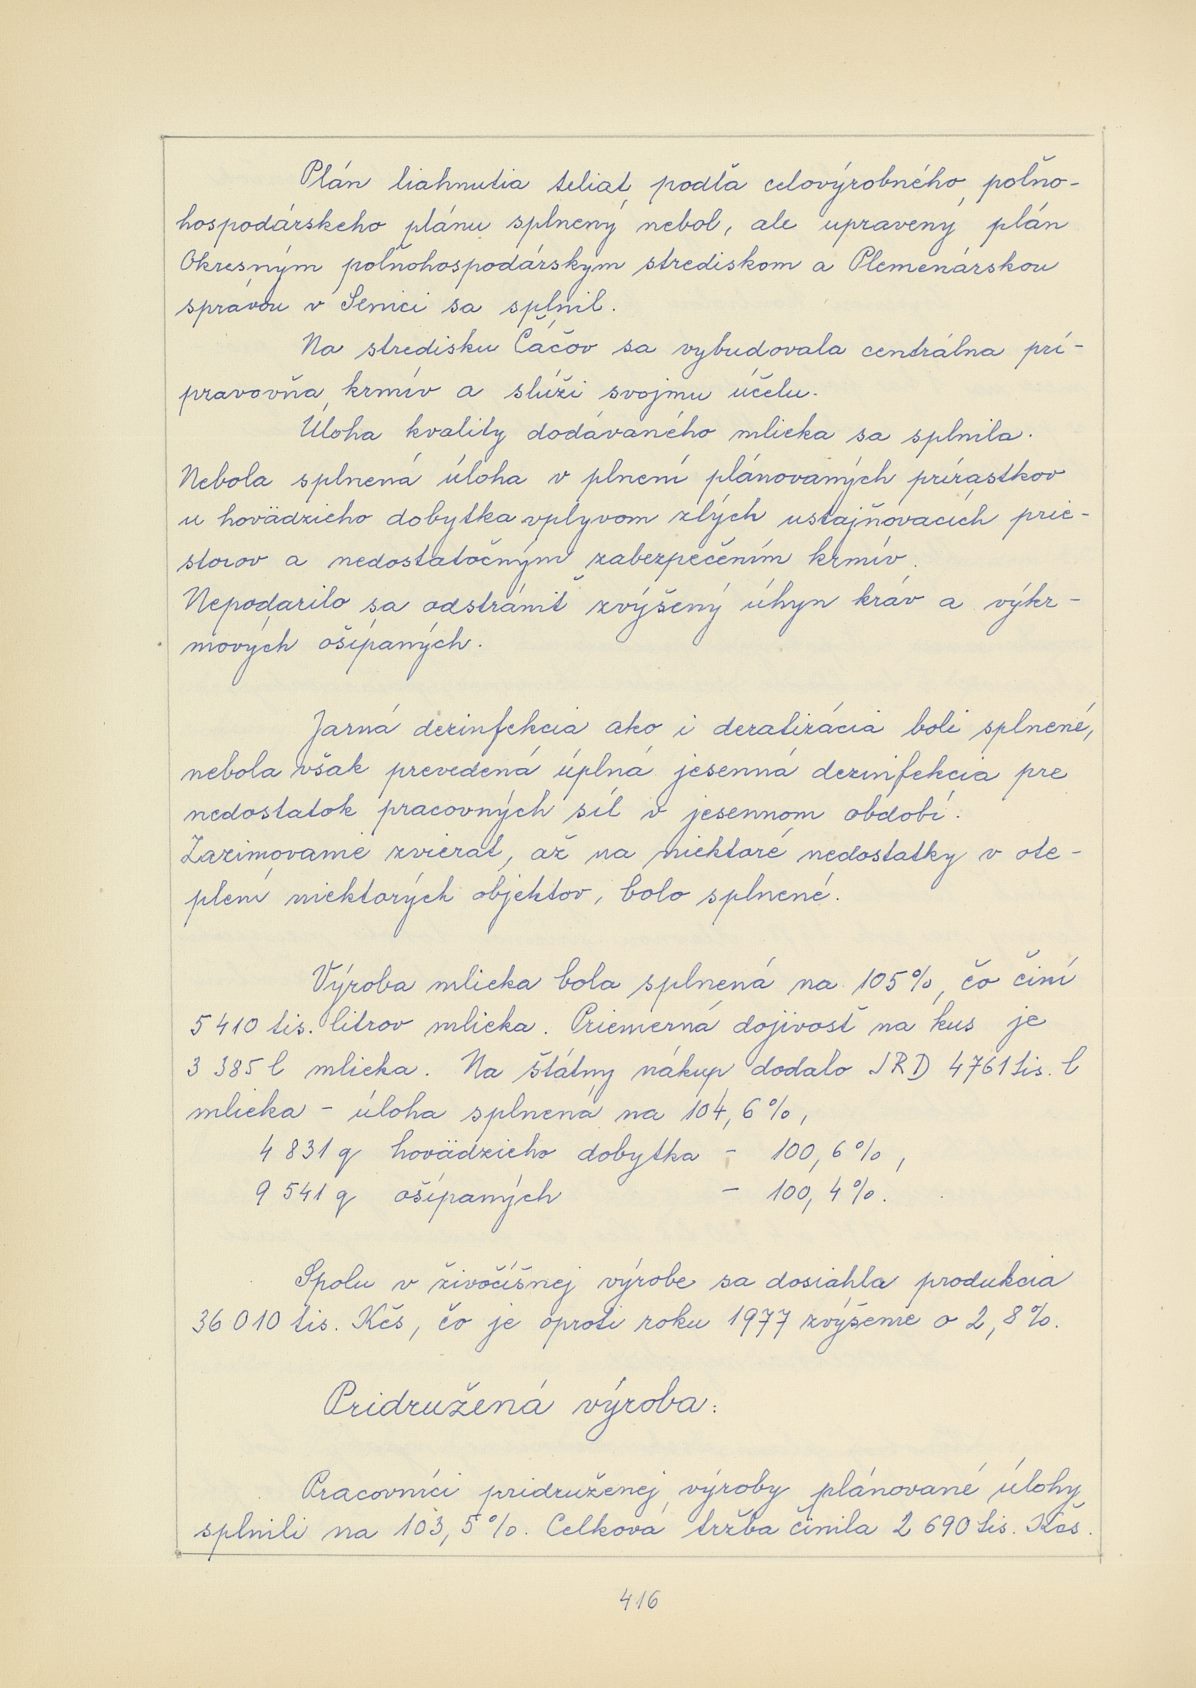 Plán liahnutia teliat podľa celovýrobného poľno-
hospodárskeho plánu splnený nebol, ale upravený plán
Okresným poľnohospodárskym strediskom a Plemenárskou
správou v Senici sa splnil.
Na stredisku Čáčov sa vybudovala centrálna prí-
pravovňa krmív a slúži svojmu účelu.
Úloha kvality dodávaného mlieka sa splnila.
Nebola splnená úloha v plnení plánovaných prírastkov
u hovädzieho dobytka vplyvom zlých ustajňovacích prie-
storov a nedostatočným zabezpečením krmív.
Nepodarilo sa odstrániť zvýšený úhyn kráv a výkr-
mových ošípaných.
Jarná dezinfekcia ako i deratizácia boli splnené,
nebola však prevedená úplná jesenná dezinfekcia pre
nedostatok pracovných síl v jesennom období.
Zazimovanie zvierat, až na niektoré nedostatky v ote-
plení niektorých objektov, bolo splnené.
Výroba mlieka bola splnená na 105%, čo činí
5 410 tis. litrov mlieka. Priemerná dojivosť na kus je
3 385 l mlieka. Na štátny nákup dodalo JRD 4761 tis. l
mlieka - úloha splnená na 104,6%,
4 831 q hovädzieho dobytka - 100,6%,
9 541 q ošípaných - 100,4%.
Spolu v živočíšnej výrobe sa dosiahla produkcia
36 010 tis. Kčs, čo je oproti roku 1977 zvýšenie o 2,8%.
Pridružená výroba:
Pracovníci pridruženej výroby plánované úlohy
splnili na 103,5%. Celková tržba činila 2 690 tis. Kčs.
416